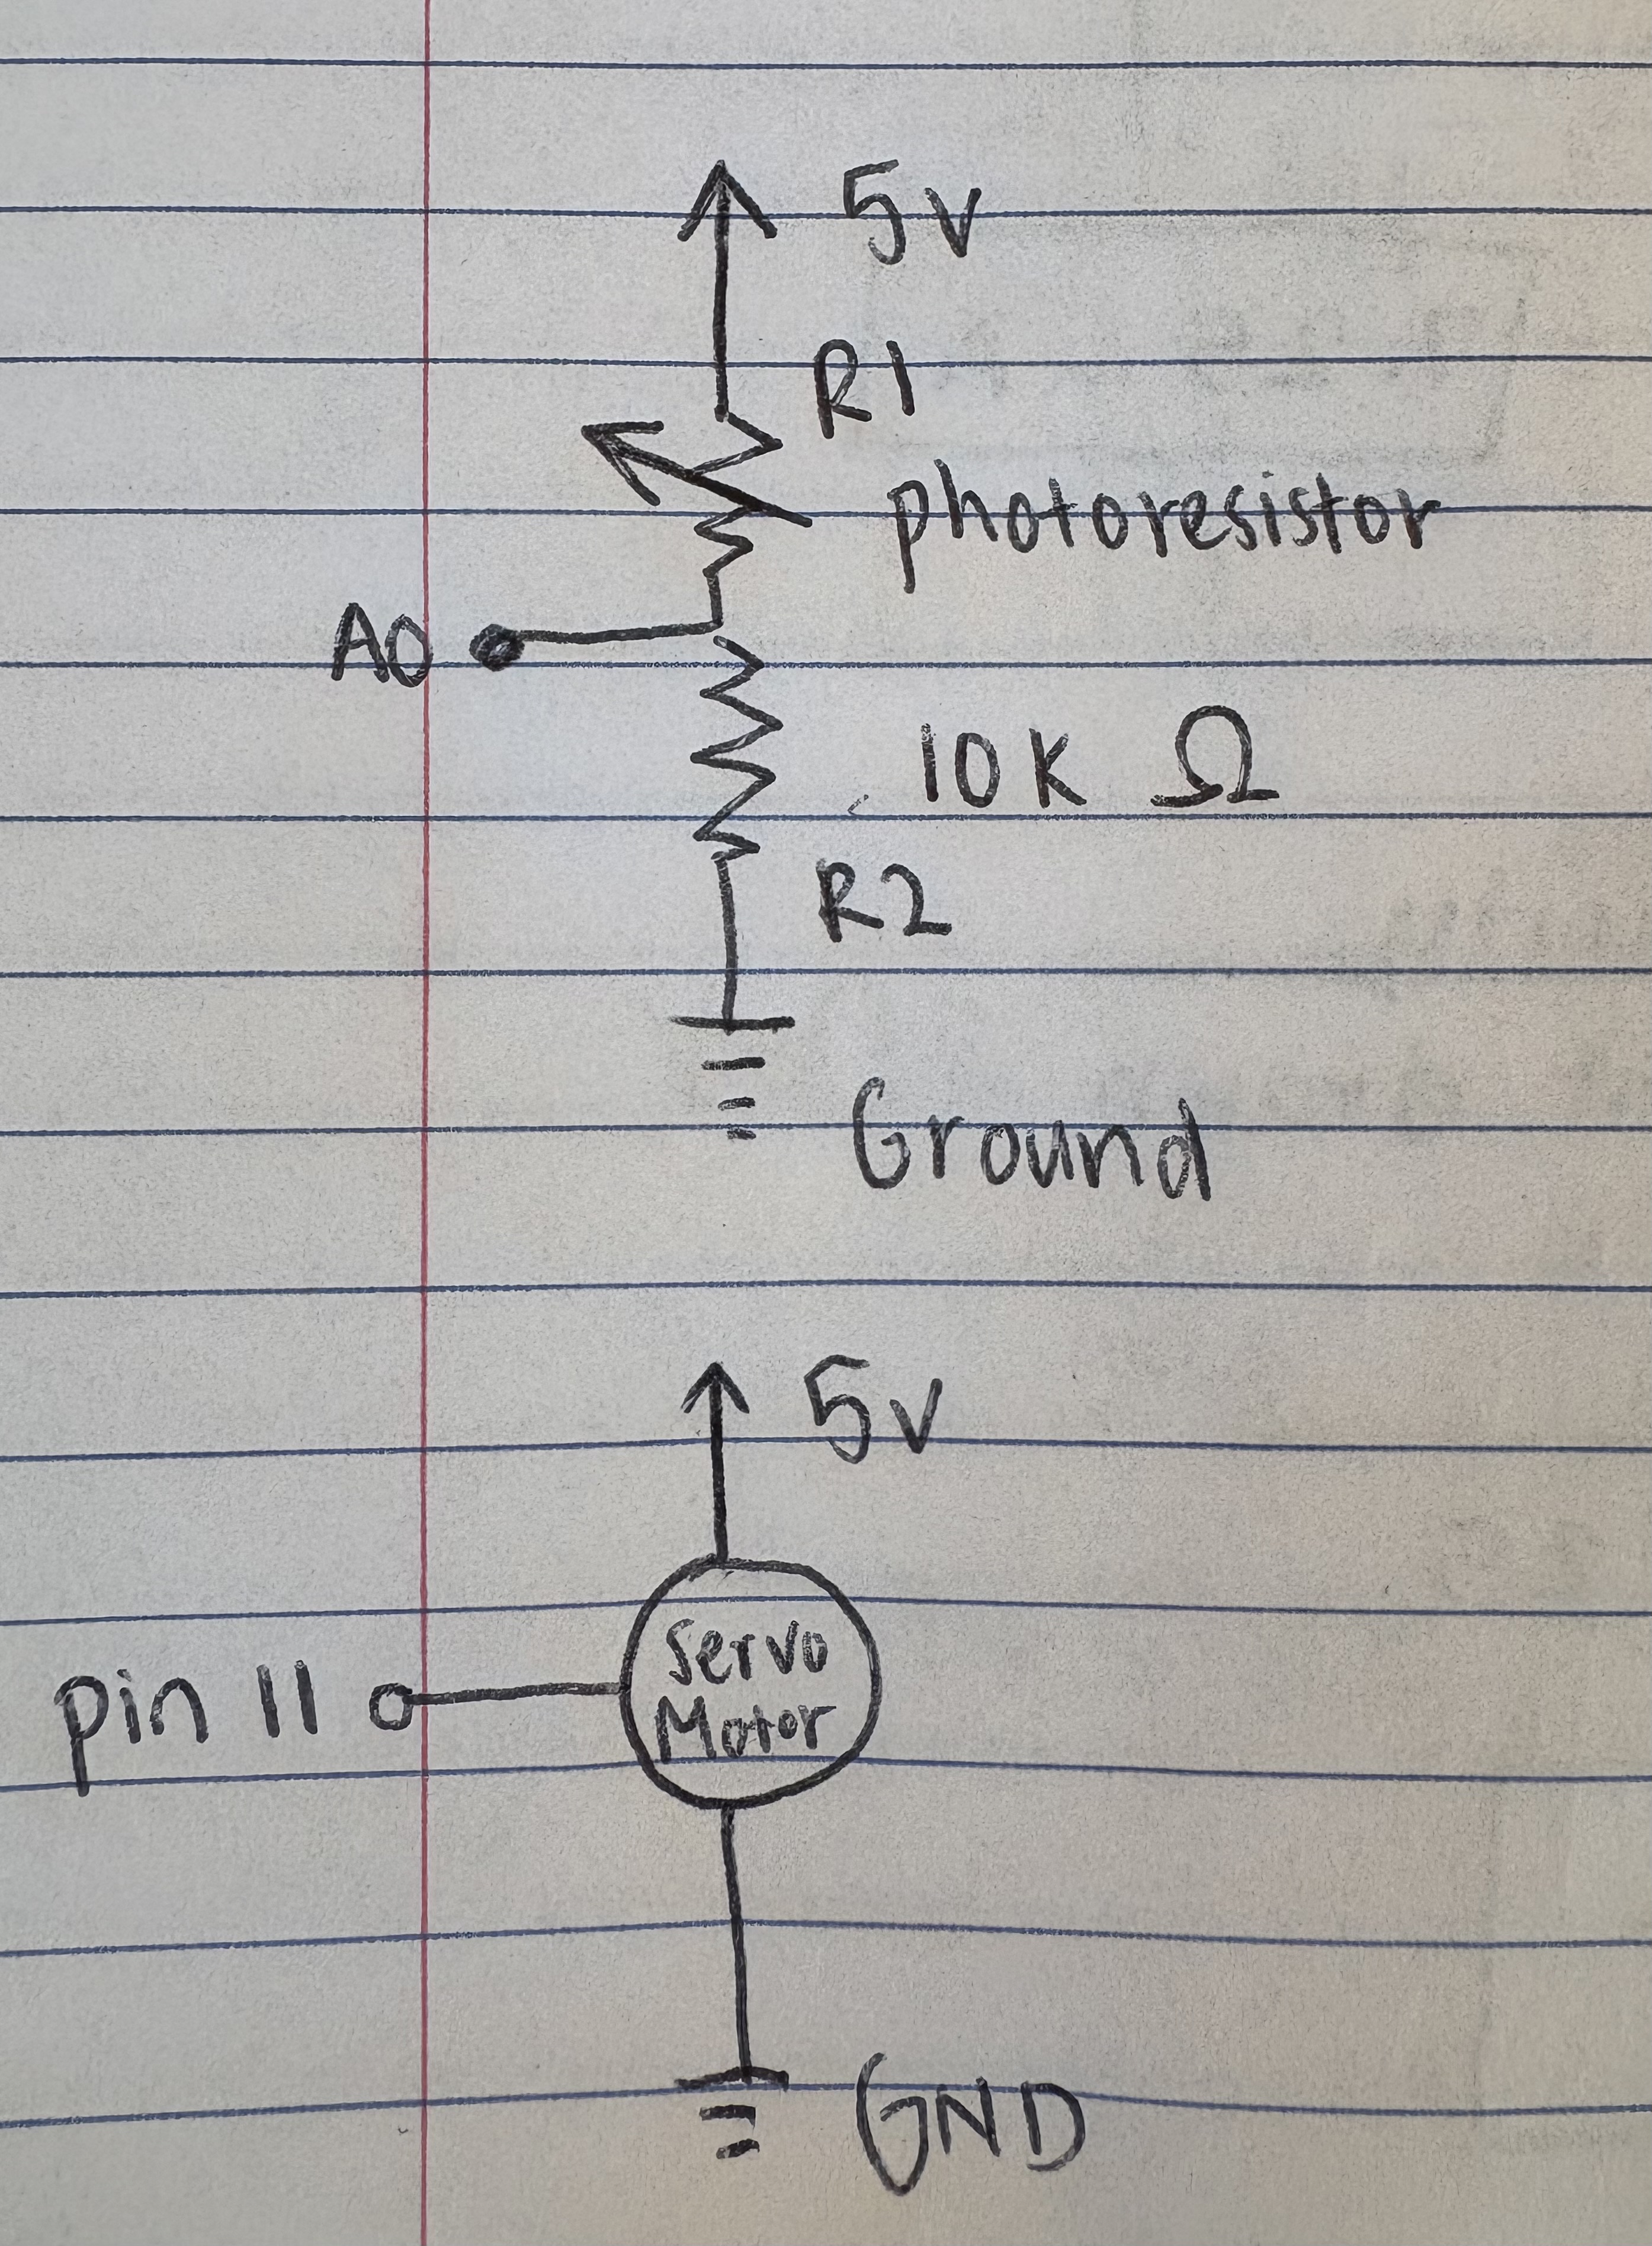 5v
R1
photoresistor
A0
10K Ω
R2
Ground
5v
Servo
Motor
pin 11
GND